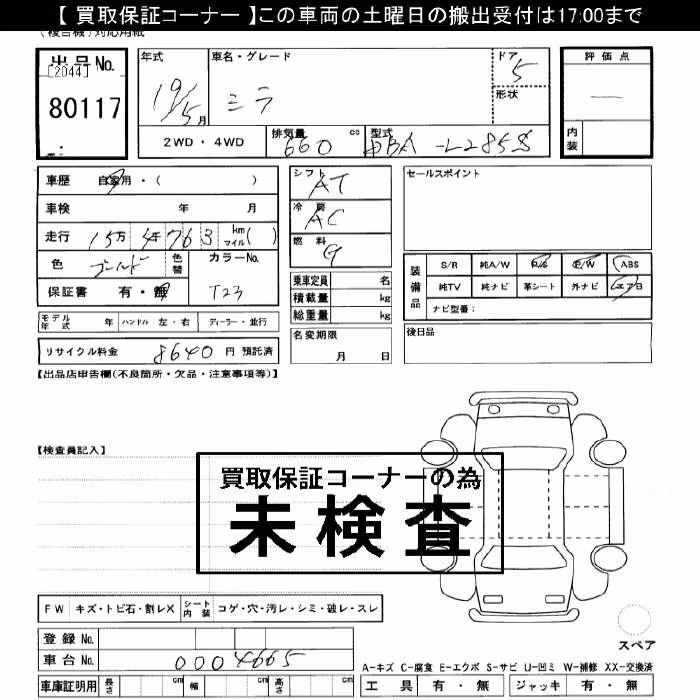 【 買取保証コーナー 】この車両の土曜日の搬出受付は17:00まで
(複合機)対応用紙
出品No.
[2044]
80117
年式
19/5月
車名・グレード
ミラ
ドア
5
形状
評価点
—
内装
2WD・4WD
排気量
660
cc
型式
DBA-L285S
車歴 自家用・( )
車検 年 月
走行 15万4千763 km マイル( )
色 ゴールド 色替
カラーNo.
T23
保証書 有・無
シフト
AT
冷房
AC
燃料
G
乗車定員 名
積載量 kg
総重量 kg
名変期限
月 日
セールスポイント
装備品
S/R 純A/W P/S P/W ABS
純TV 純ナビ 革シート 外ナビ エアB
ナビ型番:
後日品
モデル年式 年 ハンドル 左・右 ディーラー・並行
リサイクル料金 8640 円 預託済
【出品店申告欄(不良箇所・欠品・注意事項等)】
【検査員記入】
買取保証コーナーの為
未検査
FW キズ・トビ石・割レX シート内装 コゲ・穴・汚レ・シミ・破レ・スレ
登録No.
車台No. 0004665
スペア
A-キズ C-腐食 E-エクボ S-サビ U-凹ミ W-補修 XX-交換済
車庫証明用 長さ cm 幅 cm 高さ cm
工具 有・無 ジャッキ 有・無